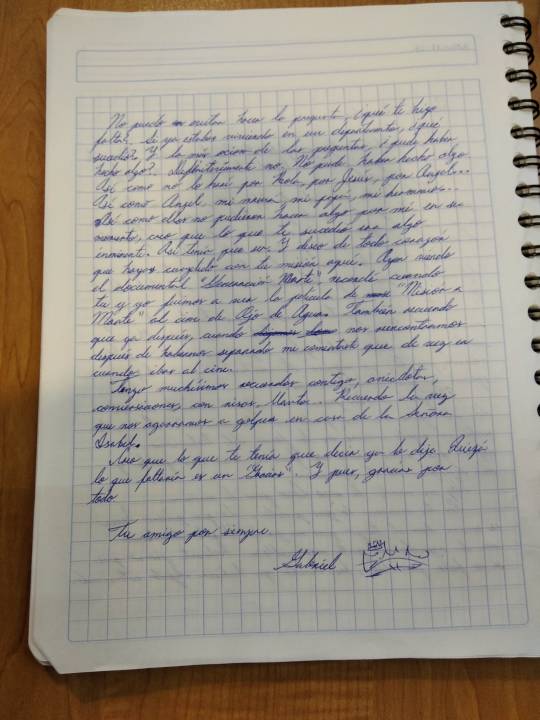 No puedo evitar hacer la pregunta, ¿qué te hizo
falta? Si ya estabas viviendo en un departamento, ¿qué
sucedió? Y la más de las preguntas, ¿pude haber
hecho algo? No pude haber hecho algo.
Así como no lo hice por por Jesús, por Angel...
Así como Angel, mi mamá, mi papá, mi hermano...
Así como ellos no pudieron hacer algo por mí en su
momento, creo que lo que te sucedió era algo
inminente. Así tenía que ser. Y deseo de todo corazón
que hayas cumplido con tu misión aquí. Ayer viendo
el documental "Generación Marte", recordé cuando
tu y yo fuimos a ver la película de "Misión a
Marte" al cine de Ojo de Agua. También recuerdo
que ya después, cuando nos reencontramos
después de habernos separado me comentaste que de vez en
cuando ibas al cine.
Tengo muchísimos recuerdos contigo, anécdotas,
conversaciones, con risas, llantos. Recuerdo la vez
que nos agarramos a golpes en casa de la Señora
Isabel.
Creo que lo que te tenía que decir ya lo dije. Quizá
lo que faltaría es un "Gracias". Y pues, gracias por
todo.
Tu amigo por siempre.
Gabriel